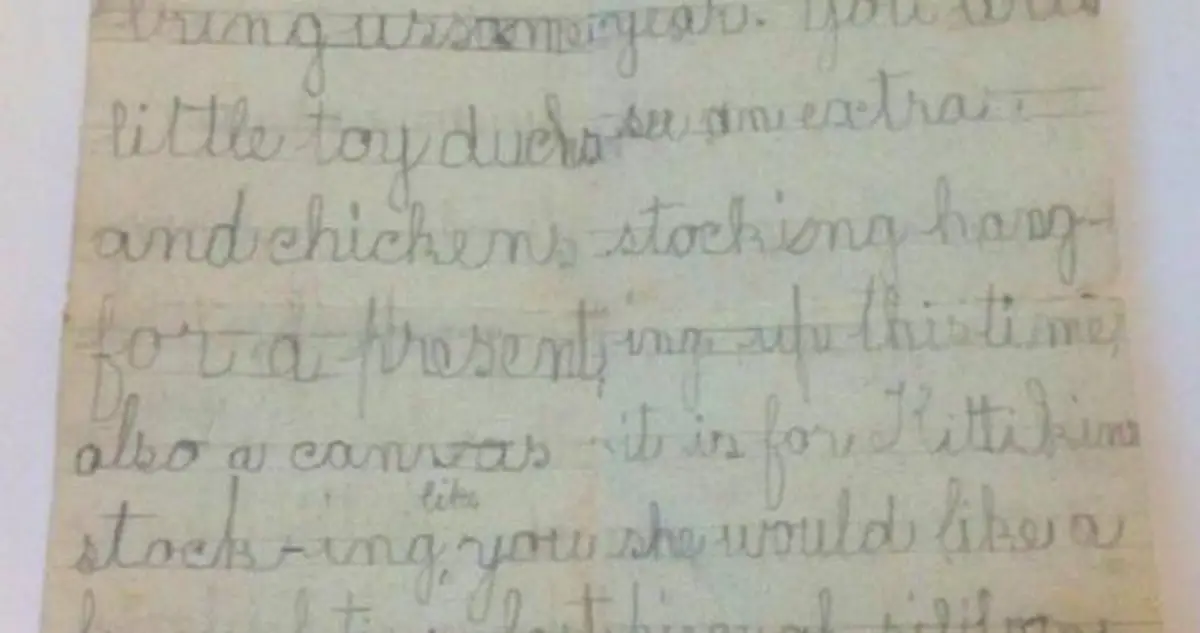 bring us some
little toy ducks
and chickens
for a present,
also a canvas
like
stock-ing, you
last
year. You will
see an extra
stocking hang-
ing up this time
it is for Kittikins
she would like a